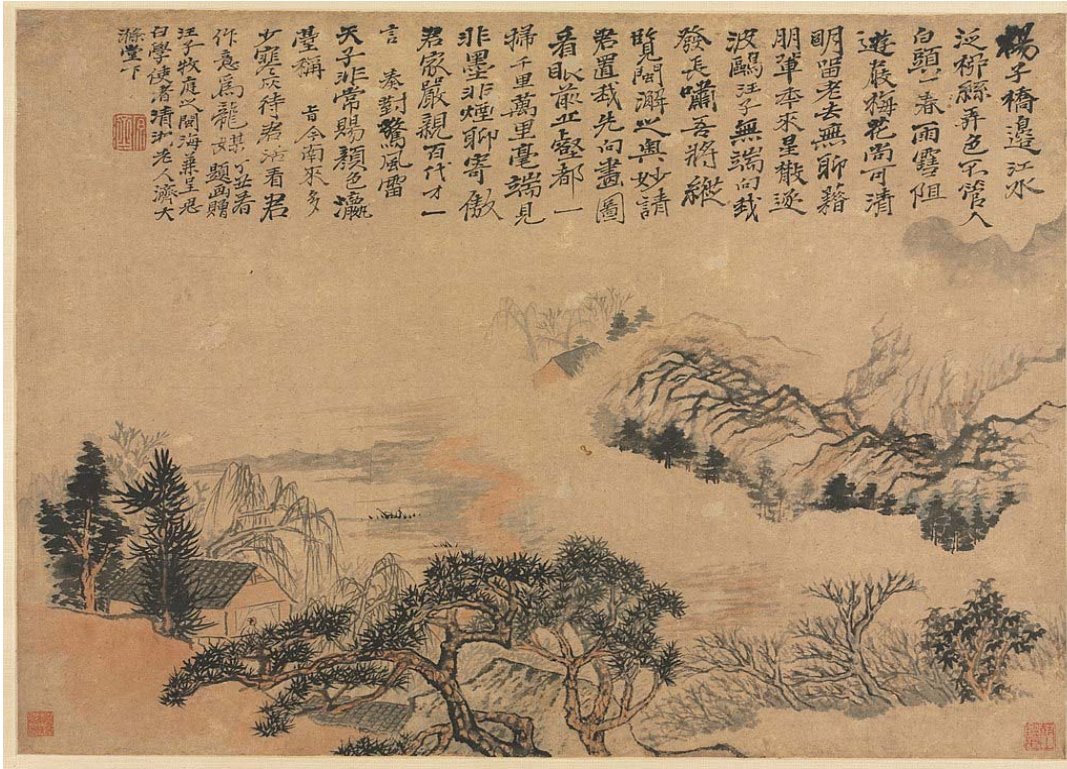 楊子橋邊江水
泛柳絲弄色不管人
白頭一春雨雪阻
遊梅花尚可清
明留老去無聊藉
朋輩本來是散逐
波鷗汪子無端向我
發長嘯吾將縱
覽閩澥之奧妙請
君置我先向畫圖
看眼前丘壑都一
掃千里萬里毫端見
非墨非煙聊寄傲
君家嚴親百代才一
言奏對驚風雷
天子非常賜顏色瀛
臺稱旨今南來多
少待君活看君
作意爲龍媒丁丑春題画贈
汪子牧庭之閩海兼呈思
白學使者清湘老人濟大
滌堂下